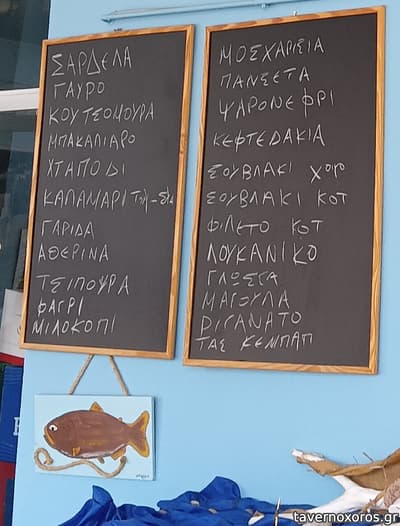 ΣΑΡΔΕΛΑ
ΓΑΥΡΟ
ΚΟΥΤΣΟΜΟΥΡΑ
ΜΠΑΚΑΛΙΑΡΟ
ΧΤΑΠΟΔΙ
ΚΑΛΑΜΑΡΙ
ΓΑΡΙΔΑ
ΑΘΕΡΙΝΑ
ΤΣΙΠΟΥΡΑ
ΦΑΓΡΙ
ΜΙΛΟΚΟΠΙ
ΜΟΣΧΑΡΙΣΙΑ
ΠΑΝΣΕΤΑ
ΨΑΡΟΝΕΦΡΙ
ΚΕΦΤΕΔΑΚΙΑ
ΣΟΥΒΛΑΚΙ ΧΟΙΡ
ΣΟΥΒΛΑΚΙ ΚΟΤ
ΦΙΛΕΤΟ ΚΟΤ
ΛΟΥΚΑΝΙΚΟ
ΓΛΩΣΣΑ
ΜΑΓΟΥΛΑ
ΡΙΓΑΝΑΤΟ
ΤΑΣ ΚΕΜΠΑΠ
tavernoxoros.gr